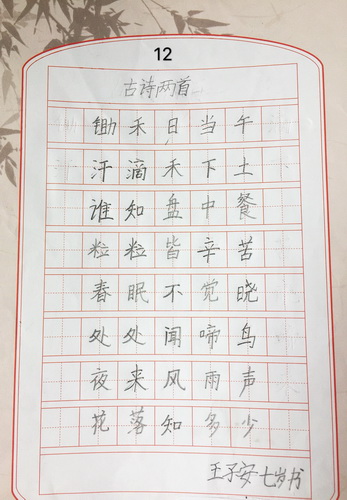 12
古诗两首
锄禾日当午
汗滴禾下土
谁知盘中餐
粒粒皆辛苦
春眠不觉晓
处处闻啼鸟
夜来风雨声
花落知多少
王子安七岁书